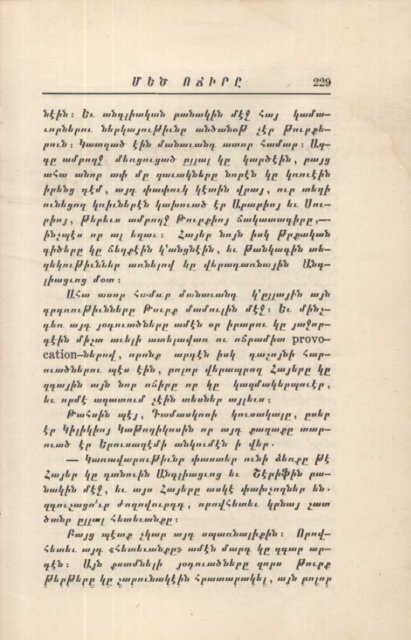 ՄԵԾ ՈՃԻՐԸ 229
նէին։ Եւ անգլիական բանակին մէջ Հայ կամա-
ւորներու ներկայութիւնը անծանօթ չէր Թուրքե-
րուն։ Կատղած էին մանաւանդ ասոր համար։ Ազ-
գը ամբողջ մեռցուցած ըլլալ կը կարծէին, բայց
ահա անոր ափ մը զաւակները նորէն կը կռուէին
իրենց դէմ, այդ փափուկ կէտին վրայ, ուր տեղի
ունեցող կռիւներէն կախուած էր Արաբիոյ եւ Սու-
րիոյ, Թերեւս ամբողջ Թուրքիոյ ճակատագիրը,—
ինչպէս որ ալ եղաւ։ Հայեր նոյն իսկ Թրքական
գիծերը կը ճեղքէին կ'անցնէին, եւ Թանկագին տե-
ղեկութիւններ առնելով կը վերադառնային Անգ-
լիացւոց մօտ։
Ահա ասոր համար մանաւանդ կ'ըլլային այն
գրգռութիւնները Թուրք մամուլին մէջ։ Եւ մինչ-
դեռ այդ յօդուածները ամէն օր իրարու կը յաջոր-
դէին միշտ աւելի ատելավառ ու ոճրամիտ provo-
cation-ներով, որոնք արդէն իսկ դաշոյնի հար-
ուածներու պէս էին, բոլոր վերապրող Հայերը կը
զգային այն նոր ոճիրը որ կը կազմակերպուէր,
եւ որմէ ազատում չէին տեսներ այլեւս։
Թահսին պէյ, Դամասկոսի կուսակալը, ըսեր
էր Կիլիկիոյ Կաթողիկոսին որ այդ քաղաքը տար-
ուած էր Երուսաղէմի անկումէն ի վեր.
— Կառավարութիւնը փաստեր ունի ձեռքը թէ
Հայեր կը գտնուին Անգլիացւոց եւ Շէրիֆին բա-
նակին մէջ, եւ այս Հայերը ասկէ փախչողներ են.
զգուշացո՛ւր ժողովուրդդ, որովհետեւ կրնայ շատ
ծանր ըլլալ հետեւանքը։
Բայց պէտք չկար այդ սպառնալիքին։ Որով-
հետեւ այդ «հետեւանքը» ամէն մարդ կը զգար ար-
դէն։ Այն քստմնելի յօդուածները զորս Թուրք
թերթերը կը շարունակէին հրատարակել, այն բոլոր